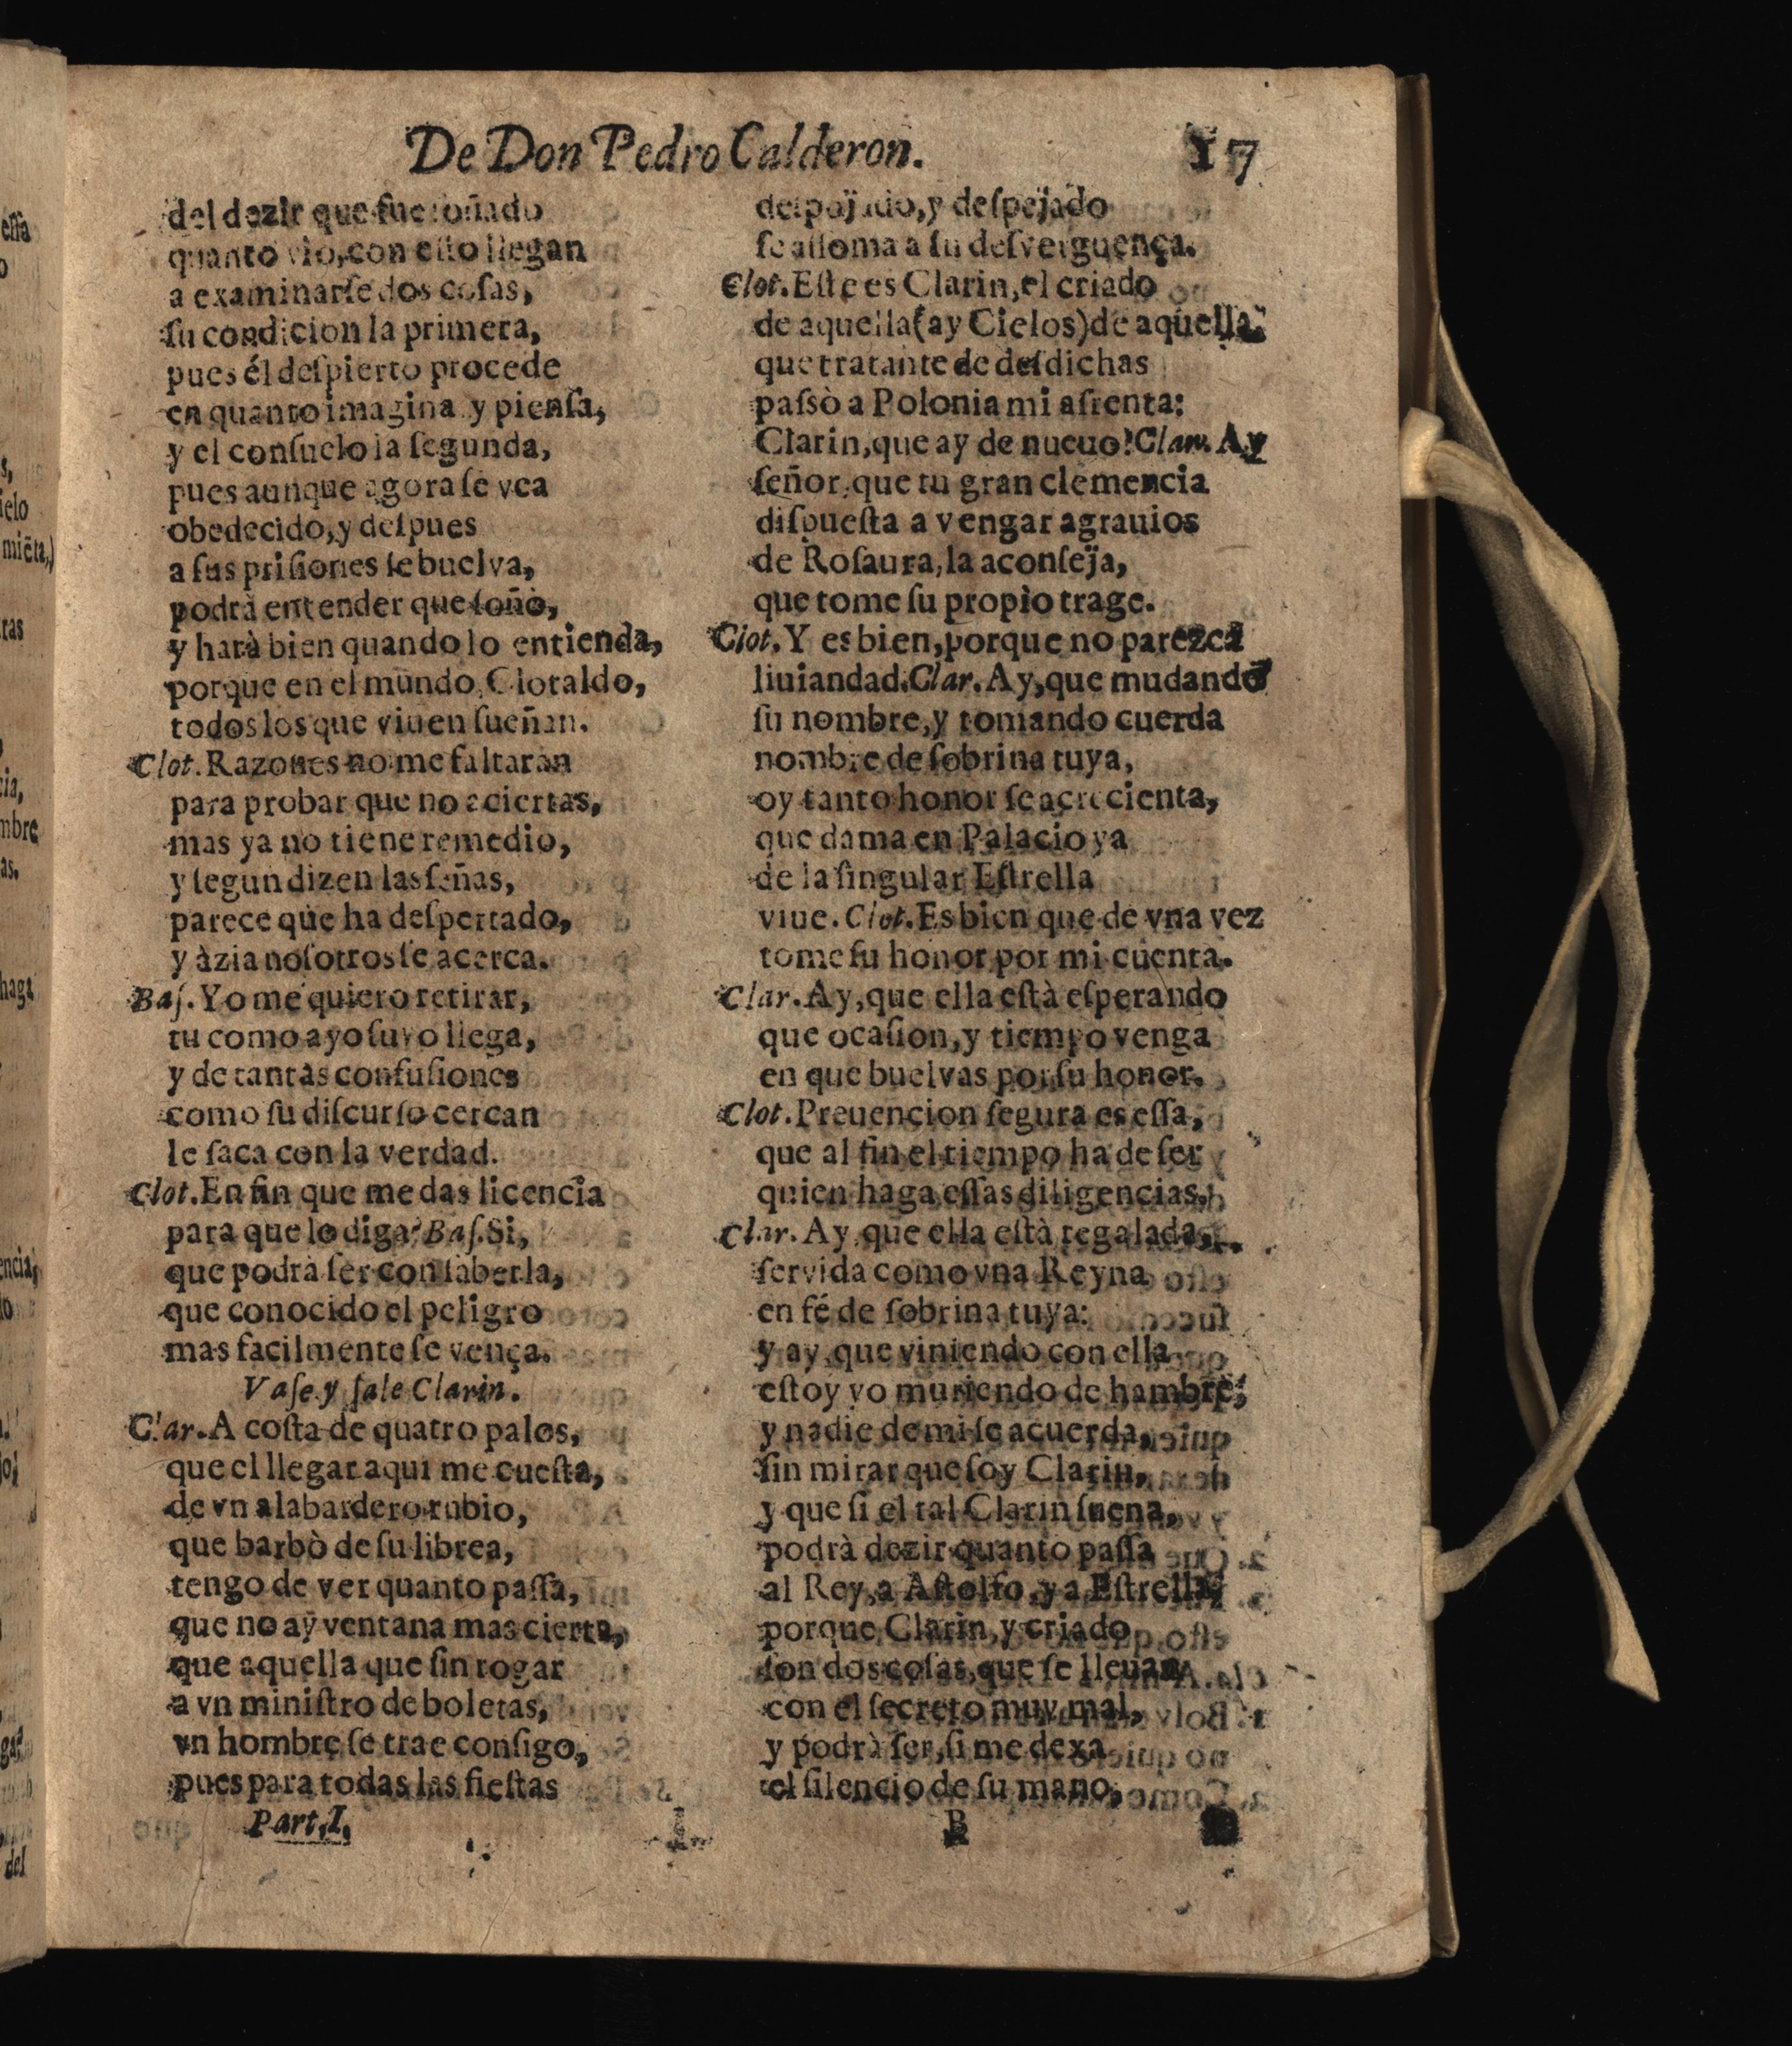 De Don Pedro Calderon. 17
del dezir que fue soñado
quanto vio, con esto llegan
a examinarse dos cosas,
su condicion la primera,
pues él despierto procede
en quanto imagina y piensa,
y el consuelo la segunda,
pues aunque agora se vea
obedecido, y despues
a sus prisiones se buelva,
podrà entender que soñò,
y harà bien quando lo entienda,
porque en el mundo, Clotaldo,
todos los que viuen sueñan.
Clot. Razones no me faltaran
para probar que no aciertas,
mas ya no tiene remedio,
y segun dizen las señas,
parece que ha despertado,
y àzia nosotros se acerca.
Bas. Yo me quiero retirar,
tu como ayo suyo llega,
y de tantas confusiones
como su discurso cercan
le saca con la verdad.
Clot. En fin que me das licencia
para que lo diga? Bas. Si,
que podrà ser con saberla,
que conocido el peligro
mas facilmente se vença.
Vase y sale Clarin.
Clar. A costa de quatro palos,
que el llegar aqui me cuesta,
de vn alabardero rubio,
que barbò de su librea,
tengo de ver quanto passa,
que no ay ventana mas cierta,
que aquella que sin rogar
a vn ministro de boletas,
vn hombre se trae consigo,
pues para todas las fiestas
Part. I.
despojado, y despejado
se assoma a su desverguença.
Clot. Este es Clarin, el criado
de aquella (ay Cielos) de aquella
que tratante de desdichas
passò a Polonia mi afrenta:
Clarin, que ay de nueuo? Clar. Ay
señor, que tu gran clemencia
dispuesta a vengar agrauios
de Rosaura, la aconseja,
que tome su propio trage.
Clot. Y es bien, porque no parezca
liuiandad. Clar. Ay, que mudando
su nombre, y tomando cuerda
nombre de sobrina tuya,
oy tanto honor se acrecienta,
que dama en Palacio ya
de la singular Estrella
viue. Clot. Es bien que de vna vez
tome su honor por mi cuenta.
Clar. Ay, que ella està esperando
que ocasion, y tiempo venga
en que buelvas por su honor.
Clot. Preuencion segura es essa,
que al fin el tiempo ha de ser
quien haga essas diligencias.
Clar. Ay que ella està regalada,
servida como vna Reyna
en fé de sobrina tuya:
y ay, que viniendo con ella
estoy yo muriendo de hambre,
y nadie de mi se acuerda,
sin mirar que soy Clarin,
y que si el tal Clarin suena,
podrà dezir quanto passa
al Rey, a Astolfo, y a Estrella,
porque Clarin, y criado
son dos cosas, que se lleuan
con el secreto muy mal,
y podrà ser, si me dexa
el silencio de su mano,
B